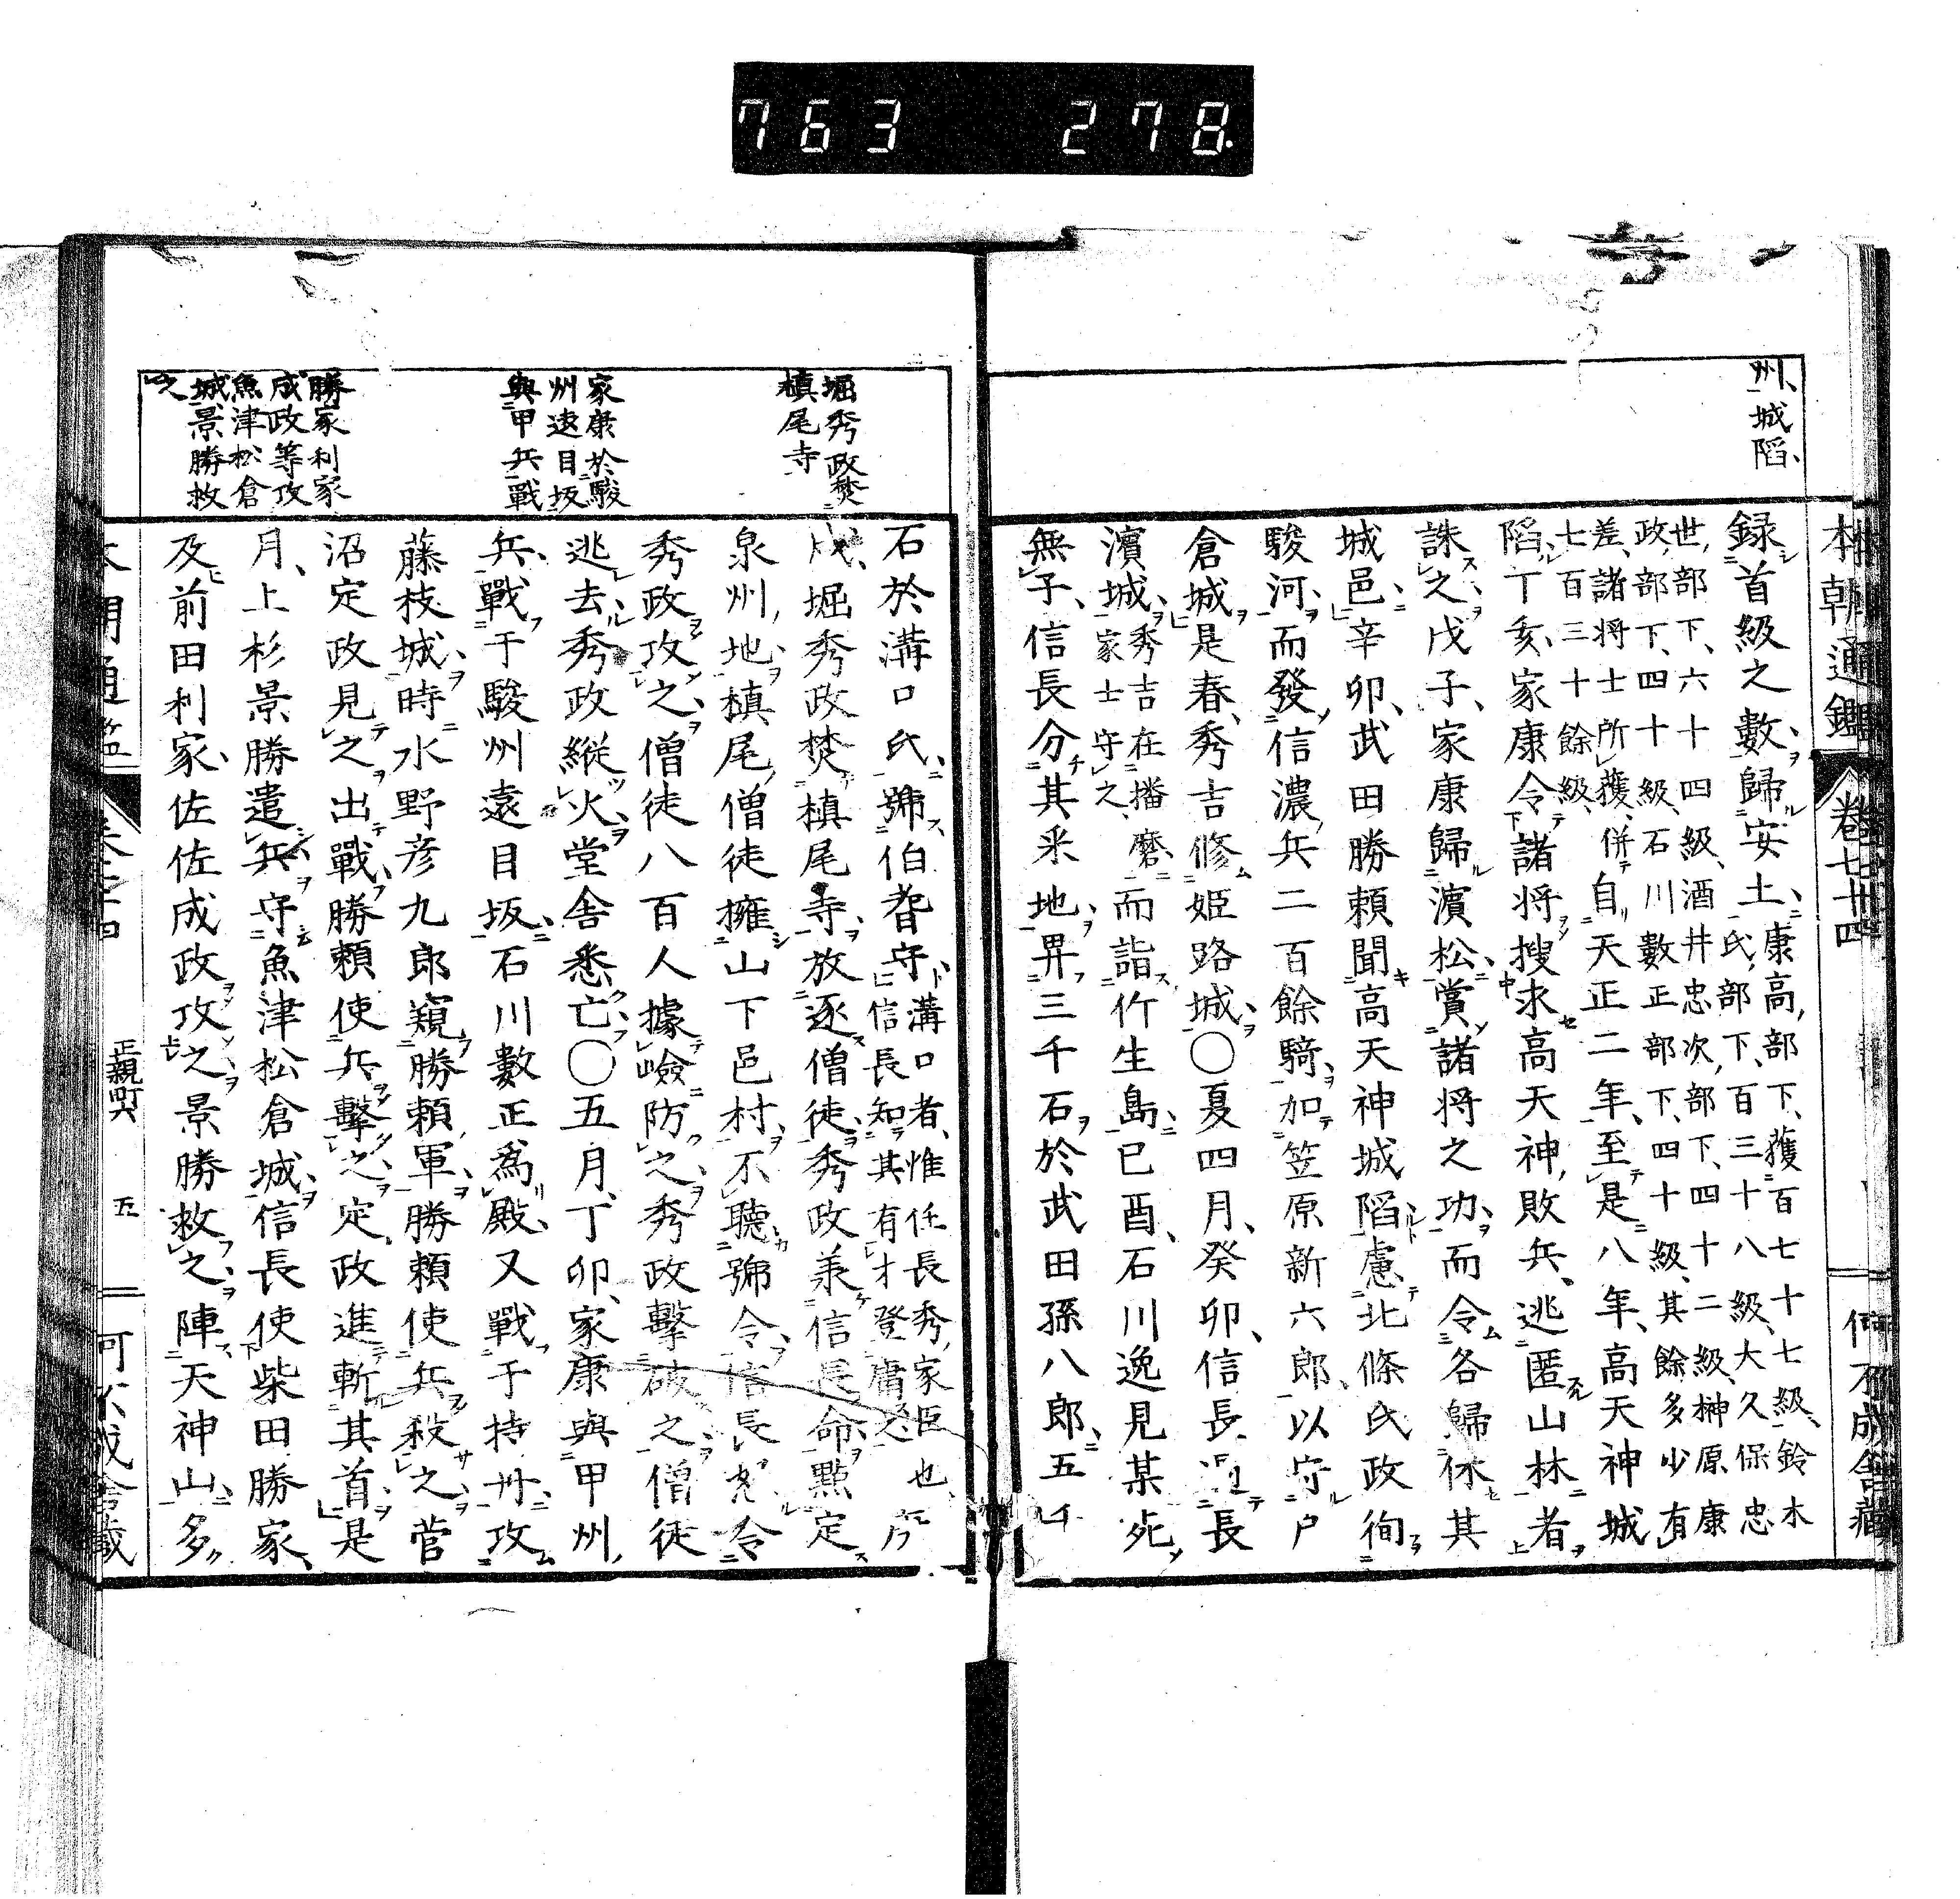 763 278.
本朝通鑑 卷七十四 何不成舍藏
州、城陷、
録首級之數、歸安土、
康高、部下、獲百七十七級、鈴木
氏、部下、百三十八級、大久保忠
世、部下、六十四級、酒井忠次、部下、四十二級、榊原康
政、部下、四十級、石川數正部下、四十級、其餘多少有
差、諸将士所獲、併自天正二年、至是八年、高天神城
七百三十餘級、
陷、丁亥、家康令諸将搜求高天神敗兵、逃匿山林者
誅之、戊子、家康歸濵松、賞諸将之功、而令各歸休其
城邑、辛卯、武田勝頼聞高天神城陷、慮北條氏政徇
駿河、而發信濃兵二百餘騎、加笠原新六郎、以守戸
倉城、是春、秀吉修姫路城、〇夏四月、癸卯、信長過長
濵城、
秀吉在播磨、
家士守之、
而詣竹生島、已酉、石川逸見某死、
無子、信長分其釆地、畀三千石、於武田孫八郎、五千
石於溝口氏、號伯耆守、
溝口者、惟任長秀、家臣也、
信長知其有才登庸之、
戌、堀秀政焚槙尾寺、放逐僧徒、秀政兼信長命、點定
泉州、地、槙尾、僧徒擁山下邑村、不聽號令、信長怒令
秀政攻之、僧徒八百人據嶮防之、秀政擊破之、僧徒
逃去、秀政縦火堂舎悉亡、〇五月、丁卯、家康與甲州、
兵、戰于駿州遠目坂、石川數正為殿、又戰于持舟、攻
藤枝城、時水野彦九郎窺勝頼軍、勝頼使兵殺之、菅
沼定政見之、出戰、勝頼使兵擊之、定政進斬其首、是
月、上杉景勝遣兵守魚津松倉城、信長使柴田勝家、
及前田利家、佐佐成政攻之、景勝救之、陣天神山、多
堀秀政焚
槙尾寺
家康於駿
州遠目坂
與甲兵戰
勝家利家
成政等攻
魚津松倉
城、景勝救
之
正親町 五